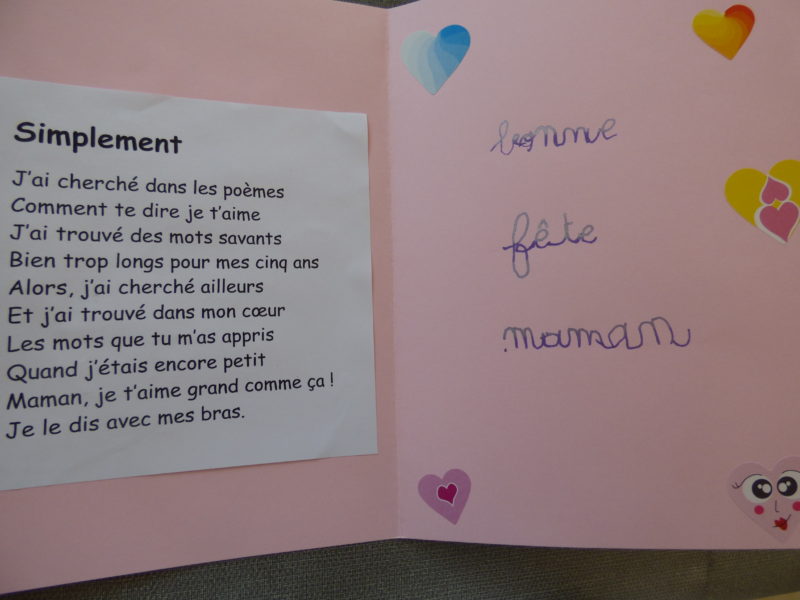 Simplement
J'ai cherché dans les poèmes
Comment te dire je t'aime
J'ai trouvé des mots savants
Bien trop longs pour mes cinq ans
Alors, j'ai cherché ailleurs
Et j'ai trouvé dans mon cœur
Les mots que tu m'as appris
Quand j'étais encore petit
Maman, je t'aime grand comme ça !
Je le dis avec mes bras.
bonne
fête
maman